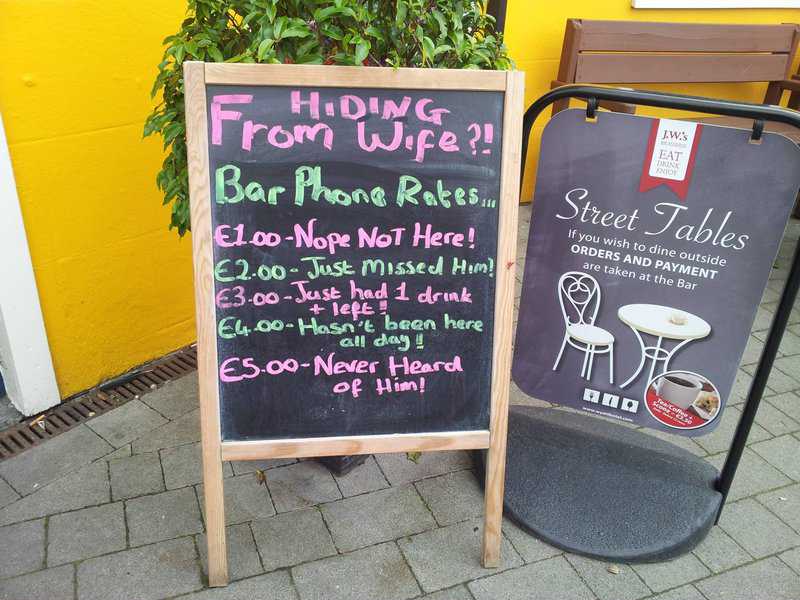 HIDING
From Wife?!
Bar Phone Rates...
€1.00-Nope NOT Here!
€2.00-Just Missed Him!
€3.00-Just had 1 drink
+ left!
€4.00-Hasn't been here
all day!!
€5.00-Never Heard
of Him!
J.W.'s
BRASSERIE
EAT
DRINK
ENJOY
Street Tables
If you wish to dine outside
ORDERS AND PAYMENT
are taken at the Bar
Tea/Coffee +
Scone